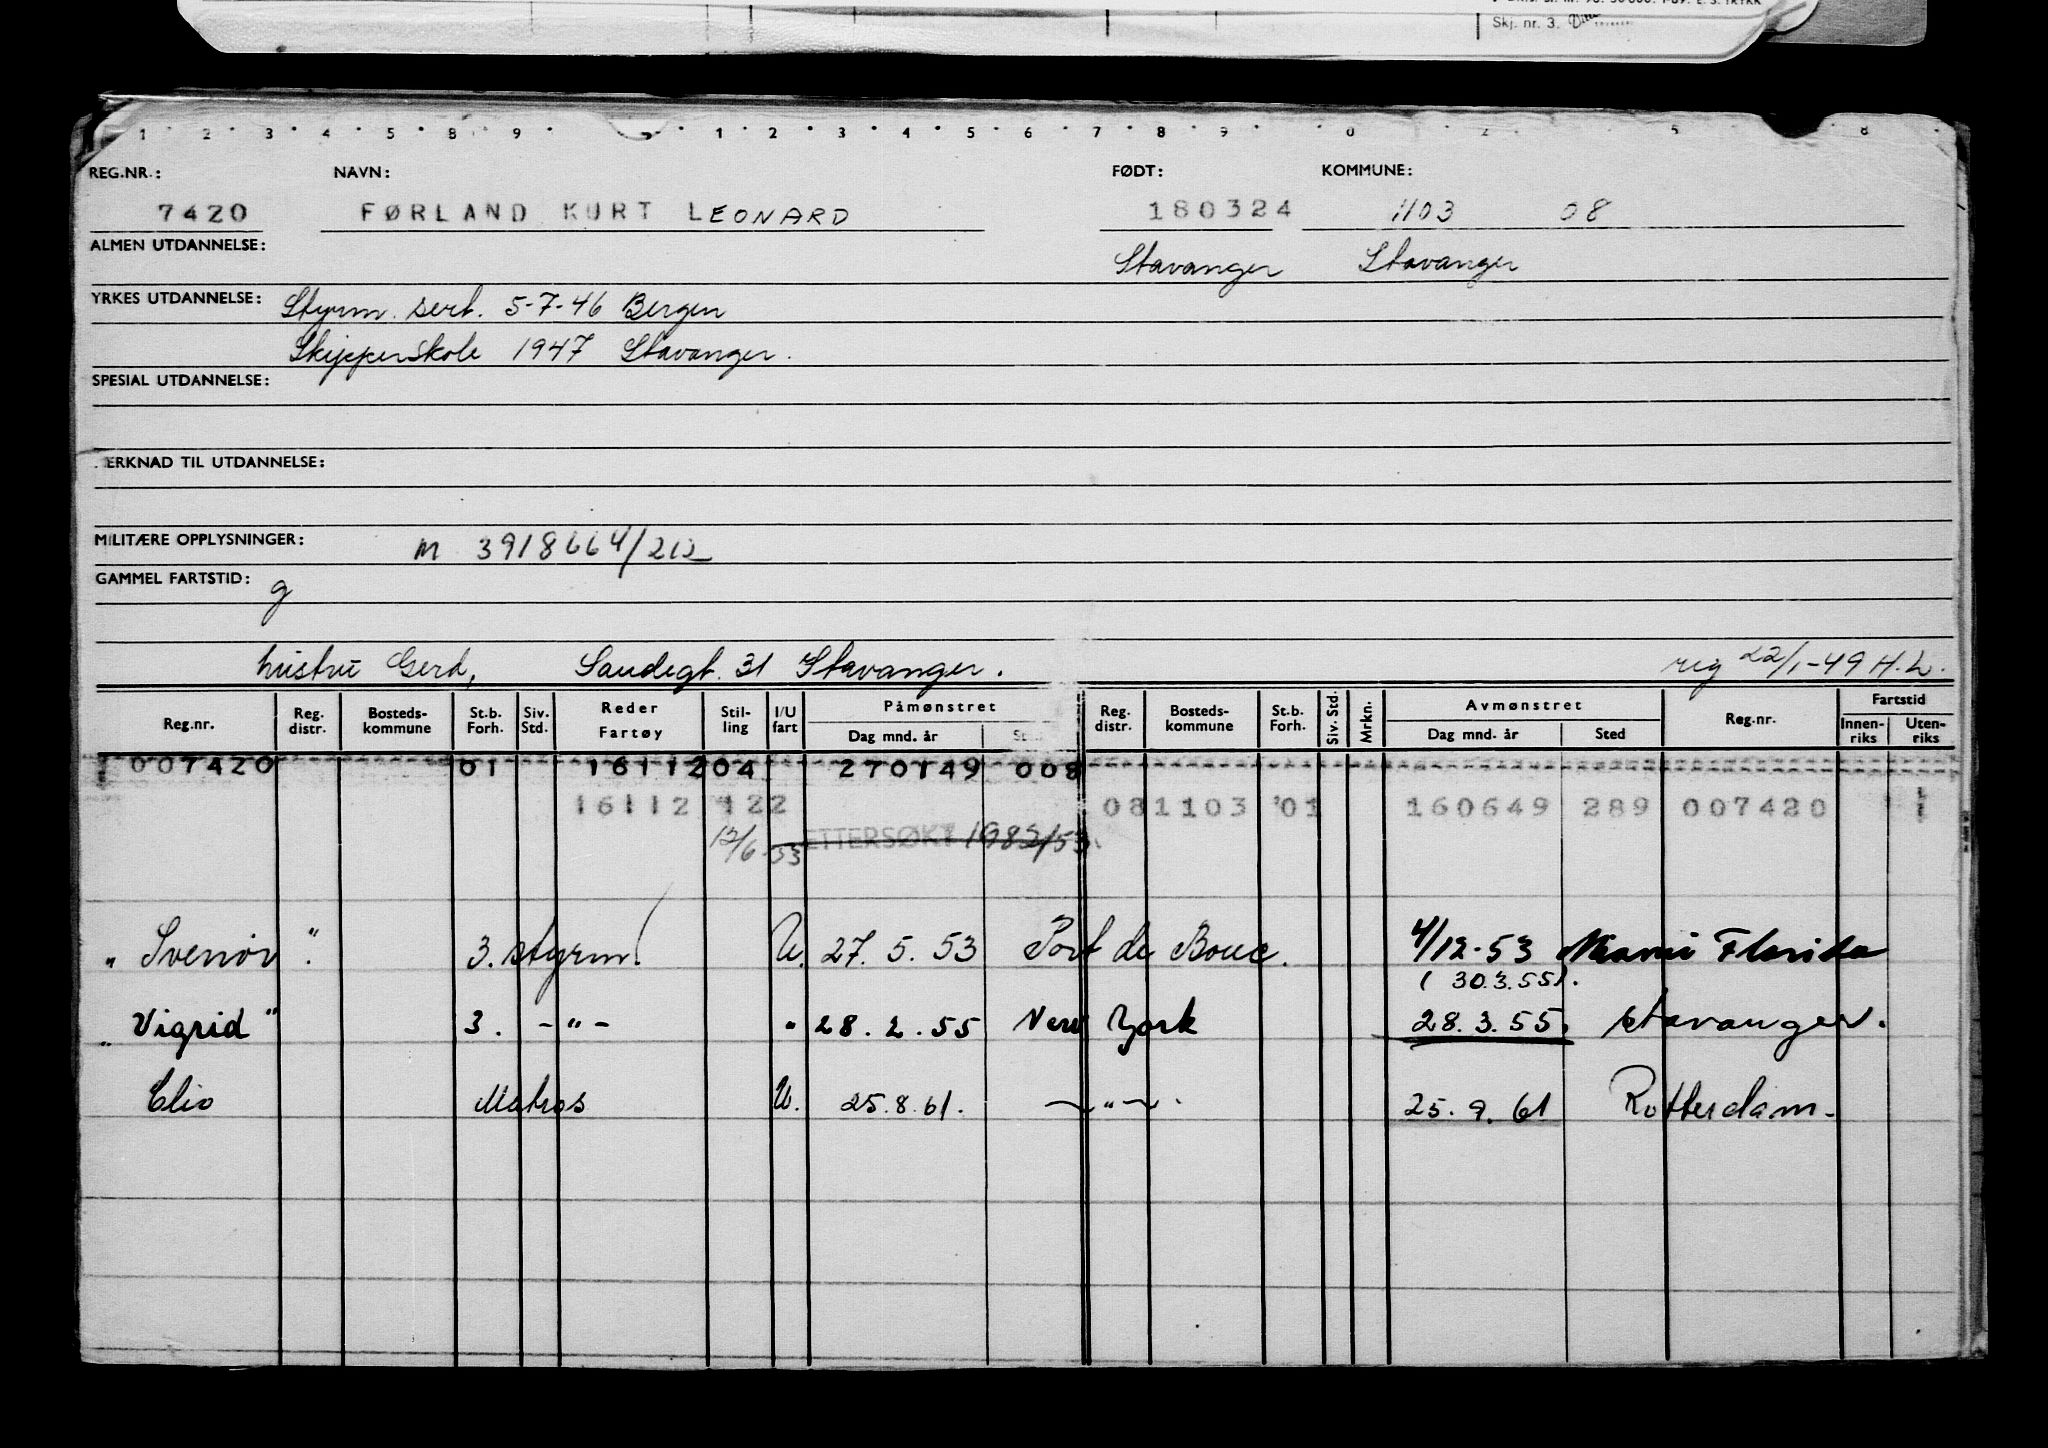 Skj. nr. 3.
REG.NR.: NAVN: FØDT: KOMMUNE:
7420 FØRLAND KURT LEONARD 180324 1103 08
ALMEN UTDANNELSE: Stavanger Stavanger
YRKES UTDANNELSE: Styrm. sert. 5-7-46 Bergen
Skipperskole 1947 Stavanger.
SPESIAL UTDANNELSE:
ERKNAD TIL UTDANNELSE:
MILITÆRE OPPLYSNINGER: M 3918664/212
GAMMEL FARTSTID: g
hustru Gerd, Sandegt. 31 Stavanger. reg 22/1-49 H.L.
Reg.nr. Reg. distr. Bosteds- kommune St.b. Forh. Siv. Std. Reder Fartøy Stil- ling I/U fart Påmønstret Dag mnd. år St Reg. distr. Bosteds- kommune St.b. Forh. Siv. Std. Mrkn. Avmønstret Dag mnd. år Sted Reg.nr. Fartstid Innen- riks Uten- riks
007420 01 16112 04 270149 008
16112 122 081103 '01 160649 289 007420
12/6-53 ETTERSØKT 1983/53.
" Svenør " . 3. styrm. U. 27. 5. 53 Port de Bouc. 4/12-53 Miami Florida
( 30.3.55).
" Vigrid " 3. -"- " 28. 2. 55 New York 28. 3. 55. Stavanger.
Clio Matros U. 25. 8. 61. -"- . 25. 9. 61 Rotterdam.